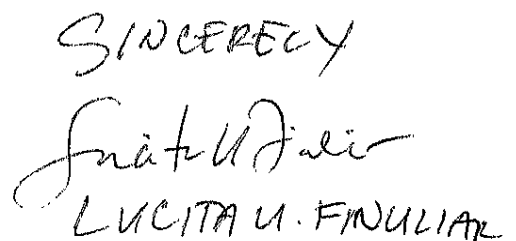 SINCERELY
LUCITA U. FINULIAR